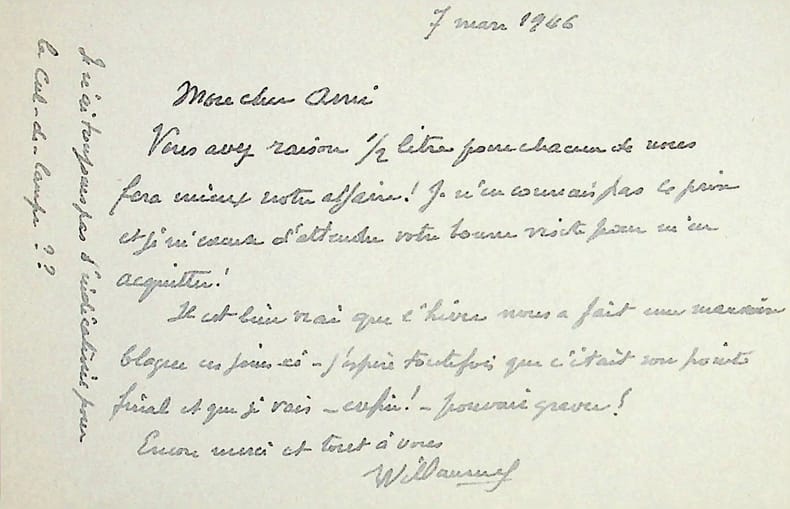 7 mars 1946
Mon cher Ami
Vous avez raison 1/2 litre pour chacun de nous
fera mieux notre affaire! Je n'en connais pas le prix
et je m'excuse d'attendre votre bonne visite pour m'en
acquitter!
Il est bien vrai que l'hiver nous a fait une mauvaise
blague ces jours-ci - j'espère toutefois que c'était son point
final et que je vais - enfin! - pouvoir graver!
Encore merci et tout à vous
Je n'ai toujours pas d'indications pour
le Cul-de-lampe ??